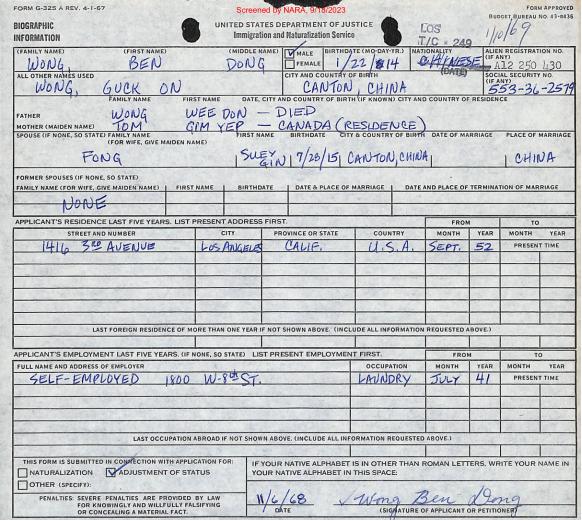 FORM G-325 A REV. 4-1-67
Screened by NARA, 9/18/2023
FORM APPROVED
BUDGET BUREAU NO. 43-R436
BIOGRAPHIC INFORMATION
UNITED STATES DEPARTMENT OF JUSTICE
Immigration and Naturalization Service
LOS
T/C - 249
1/10/69
(FAMILY NAME) (FIRST NAME) (MIDDLE NAME) MALE FEMALE BIRTHDATE (MO-DAY-YR.) NATIONALITY ALIEN REGISTRATION NO. (IF ANY)
WONG, BEN DONG 1/22/14 CHINESE A12 250 430
(DATE)
ALL OTHER NAMES USED CITY AND COUNTRY OF BIRTH SOCIAL SECURITY NO. (IF ANY)
WONG, GUCK ON CANTON, CHINA 553-36-2579
FAMILY NAME FIRST NAME DATE, CITY AND COUNTRY OF BIRTH (IF KNOWN) CITY AND COUNTRY OF RESIDENCE
FATHER WONG WEE DON — DIED
MOTHER (MAIDEN NAME) TOM GIM YEP — CANADA (RESIDENCE)
SPOUSE (IF NONE, SO STATE) FAMILY NAME (FOR WIFE, GIVE MAIDEN NAME) FIRST NAME BIRTHDATE CITY & COUNTRY OF BIRTH DATE OF MARRIAGE PLACE OF MARRIAGE
FONG SUEY GIN 7/28/15 CANTON, CHINA CHINA
FORMER SPOUSES (IF NONE, SO STATE)
FAMILY NAME (FOR WIFE, GIVE MAIDEN NAME) FIRST NAME BIRTHDATE DATE & PLACE OF MARRIAGE DATE AND PLACE OF TERMINATION OF MARRIAGE
NONE
APPLICANT'S RESIDENCE LAST FIVE YEARS. LIST PRESENT ADDRESS FIRST. FROM TO
STREET AND NUMBER CITY PROVINCE OR STATE COUNTRY MONTH YEAR MONTH YEAR
1416 3RD AVENUE LOS ANGELES CALIF. U.S.A. SEPT. 52 PRESENT TIME
LAST FOREIGN RESIDENCE OF MORE THAN ONE YEAR IF NOT SHOWN ABOVE. (INCLUDE ALL INFORMATION REQUESTED ABOVE.)
APPLICANT'S EMPLOYMENT LAST FIVE YEARS. (IF NONE, SO STATE) LIST PRESENT EMPLOYMENT FIRST. FROM TO
FULL NAME AND ADDRESS OF EMPLOYER OCCUPATION MONTH YEAR MONTH YEAR
SELF-EMPLOYED 1800 W-8th ST. LAUNDRY JULY 41 PRESENT TIME
LAST OCCUPATION ABROAD IF NOT SHOWN ABOVE. (INCLUDE ALL INFORMATION REQUESTED ABOVE.)
THIS FORM IS SUBMITTED IN CONNECTION WITH APPLICATION FOR:
NATURALIZATION ADJUSTMENT OF STATUS
OTHER (SPECIFY):
IF YOUR NATIVE ALPHABET IS IN OTHER THAN ROMAN LETTERS, WRITE YOUR NAME IN YOUR NATIVE ALPHABET IN THIS SPACE:
PENALTIES: SEVERE PENALTIES ARE PROVIDED BY LAW FOR KNOWINGLY AND WILLFULLY FALSIFYING OR CONCEALING A MATERIAL FACT.
11/6/68 Wong Ben Dong
DATE (SIGNATURE OF APPLICANT OR PETITIONER)